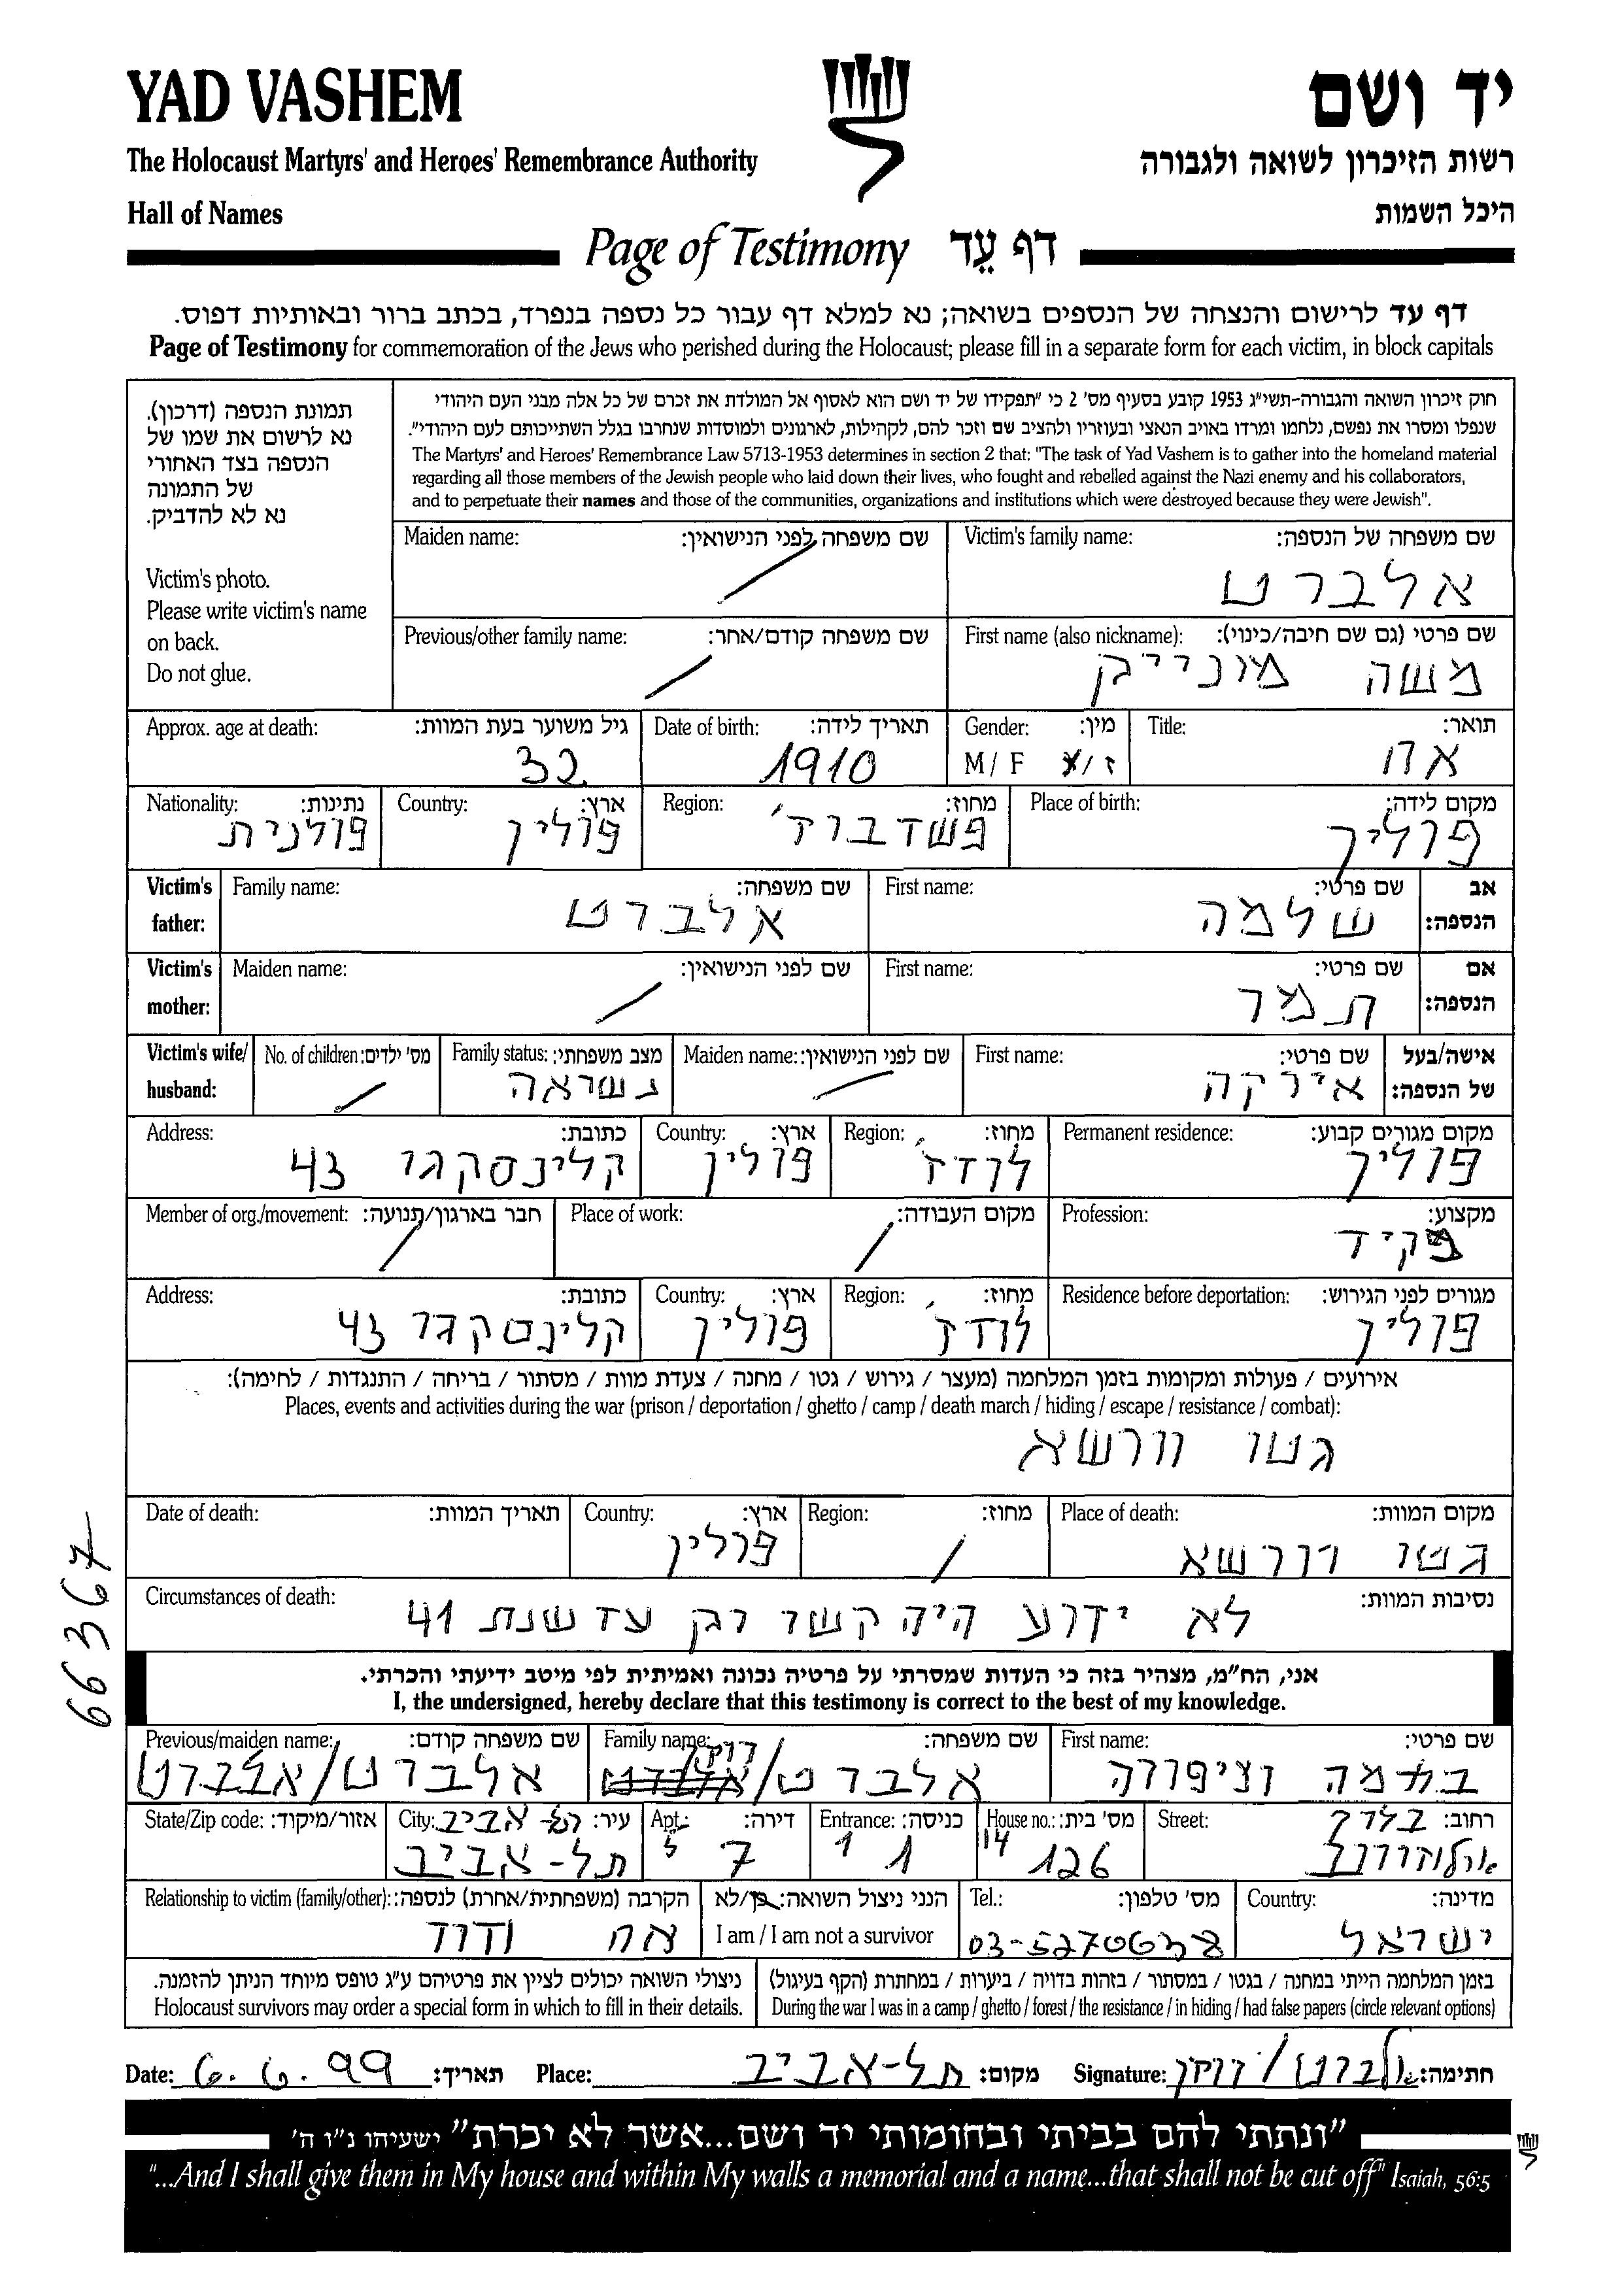 YAD VASHEM
יד ושם
The Holocaust Martyrs' and Heroes' Remembrance Authority
רשות הזיכרון לשואה ולגבורה
Hall of Names
היכל השמות
Page of Testimony דף עֵד
דף עד לרישום והנצחה של הנספים בשואה; נא למלא דף עבור כל נספה בנפרד, בכתב ברור ובאותיות דפוס.
Page of Testimony for commemoration of the Jews who perished during the Holocaust; please fill in a separate form for each victim, in block capitals
תמונת הנספה (דרכון).
נא לרשום את שמו של
הנספה בצד האחורי
של התמונה
נא לא להדביק.
Victim's photo.
Please write victim's name
on back.
Do not glue.
חוק זיכרון השואה והגבורה-תשי"ג 1953 קובע בסעיף מס' 2 כי "תפקידו של יד ושם הוא לאסוף אל המולדת את זכרם של כל אלה מבני העם היהודי
שנפלו ומסרו את נפשם, נלחמו ומרדו באויב הנאצי ובעוזריו ולהציב שם וזכר להם, לקהילות, לארגונים ולמוסדות שנחרבו בגלל השתייכותם לעם היהודי".
The Martyrs' and Heroes' Remembrance Law 5713-1953 determines in section 2 that: "The task of Yad Vashem is to gather into the homeland material
regarding all those members of the Jewish people who laid down their lives, who fought and rebelled against the Nazi enemy and his collaborators,
and to perpetuate their names and those of the communities, organizations and institutions which were destroyed because they were Jewish".
Victim's family name: שם משפחה של הנספה:
אלברט
Maiden name: שם משפחה לפני הנישואין:
First name (also nickname): שם פרטי (גם שם חיבה/כינוי):
משה מונייק
Previous/other family name: שם משפחה קודם/אחר:
Title: תואר:
אח
Gender: מין:
M / F ז/נ
Date of birth: תאריך לידה:
1910
Approx. age at death: גיל משוער בעת המוות:
32
Place of birth: מקום לידה:
פולין
Region: מחוז:
פשדבורז'
Country: ארץ:
פולין
Nationality: נתינות:
פולנית
Victim's father: אב הנספה:
First name: שם פרטי:
שלמה
Family name: שם משפחה:
אלברט
Victim's mother: אם הנספה:
First name: שם פרטי:
תמר
Maiden name: שם לפני הנישואין:
Victim's wife/ husband: אישה/בעל של הנספה:
First name: שם פרטי:
אירקה
Maiden name: שם לפני הנישואין:
Family status: מצב משפחתי:
נשואה
No. of children: מס' ילדים:
Permanent residence: מקום מגורים קבוע:
פולין
Region: מחוז:
לודז'
Country: ארץ:
פולין
Address: כתובת:
קלינסקגו 43
Profession: מקצוע:
פקיד
Place of work: מקום העבודה:
Member of org./movement: חבר בארגון/תנועה:
Residence before deportation: מגורים לפני הגירוש:
פולין
Region: מחוז:
לודז'
Country: ארץ:
פולין
Address: כתובת:
קלינסקגו 43
אירועים / פעולות ומקומות בזמן המלחמה (מעצר / גירוש / גטו / מחנה / צעדת מוות / מסתור / בריחה / התנגדות / לחימה):
Places, events and activities during the war (prison / deportation / ghetto / camp / death march / hiding / escape / resistance / combat):
גטו וורשא
Place of death: מקום המוות:
גטו וורשא
Region: מחוז:
Country: ארץ:
פולין
Date of death: תאריך המוות:
Circumstances of death: נסיבות המוות:
לא ידוע היה קשר רק עד שנת 41
66367
אני, הח"מ, מצהיר בזה כי העדות שמסרתי על פרטיה נכונה ואמיתית לפי מיטב ידיעתי והכרתי.
I, the undersigned, hereby declare that this testimony is correct to the best of my knowledge.
First name: שם פרטי:
וציפורה
Family name: שם משפחה:
אלברט/
Previous/maiden name: שם משפחה קודם:
אלברט/אלברט
Street: רחוב:
ארלוזורוב
House no.: מס' בית:
14 126
Entrance: כניסה:
1 1
Apt.: דירה:
5 7
City: עיר:
תל-אביב
תל-אביב
State/Zip code: אזור/מיקוד:
Country: מדינה:
ישראל
Tel.: מס' טלפון:
03-5270638
הנני ניצול השואה: כן/לא
I am / I am not a survivor
Relationship to victim (family/other): הקרבה (משפחתית/אחרת) לנספה:
אח ודוד
בזמן המלחמה הייתי במחנה / בגטו / במסתור / בזהות בדויה / ביערות / במחתרת (הקף בעיגול)
During the war I was in a camp / ghetto / forest / the resistance / in hiding / had false papers (circle relevant options)
ניצולי השואה יכולים לציין את פרטיהם ע"ג טופס מיוחד הניתן להזמנה.
Holocaust survivors may order a special form in which to fill in their details.
Date: 6.6.99 תאריך: Place: תל-אביב מקום: Signature: חתימה:
"ונתתי להם בביתי ובחומותי יד ושם...אשר לא יכרת" ישעיהו נ"ו ה'
"...And I shall give them in My house and within My walls a memorial and a name...that shall not be cut off" Isaiah, 56:5